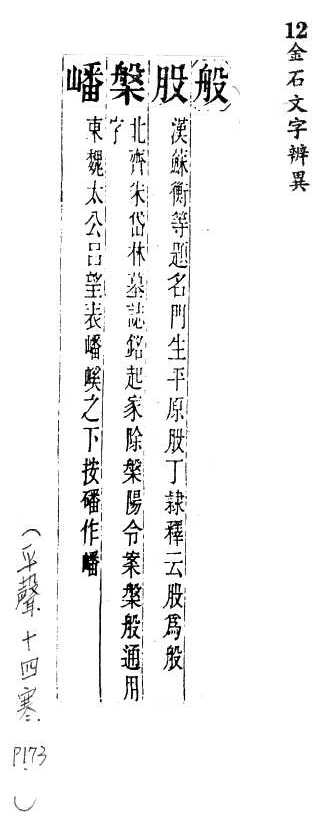 12金石文字辨異
般
股 漢蘇衡等題名門生平原股丁隸釋云股爲般
槃 北齊朱岱林墓誌銘起家除槃陽令案槃般通用
字
嶓 東魏太公呂望表嶓磎之下按磻作嶓
(平聲十四寒 P173)